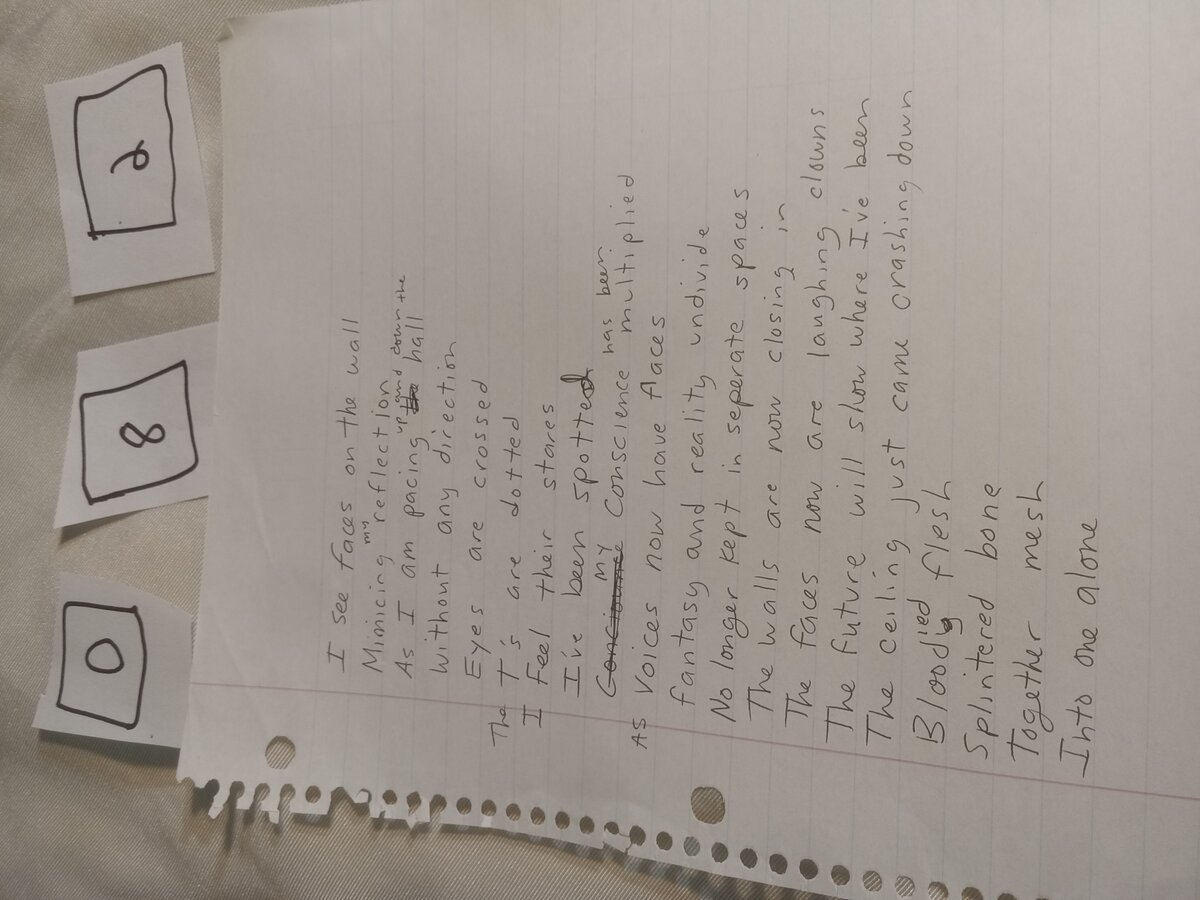 0 8 2
I see faces on the wall
Mimicing my reflection
As I am pacing up and down the hall
Without any direction
Eyes are crossed
The T's are dotted
I Feel their stares
I've been spotted
my Conscience has been multiplied
As Voices now have faces
fantasy and reality undivide
No longer kept in seperate spaces
The walls are now closing in
The faces now are laughing clowns
The future will show where I've been
The ceiling just came crashing down
Bloodied flesh
Splintered bone
Together mesh
Into one alone